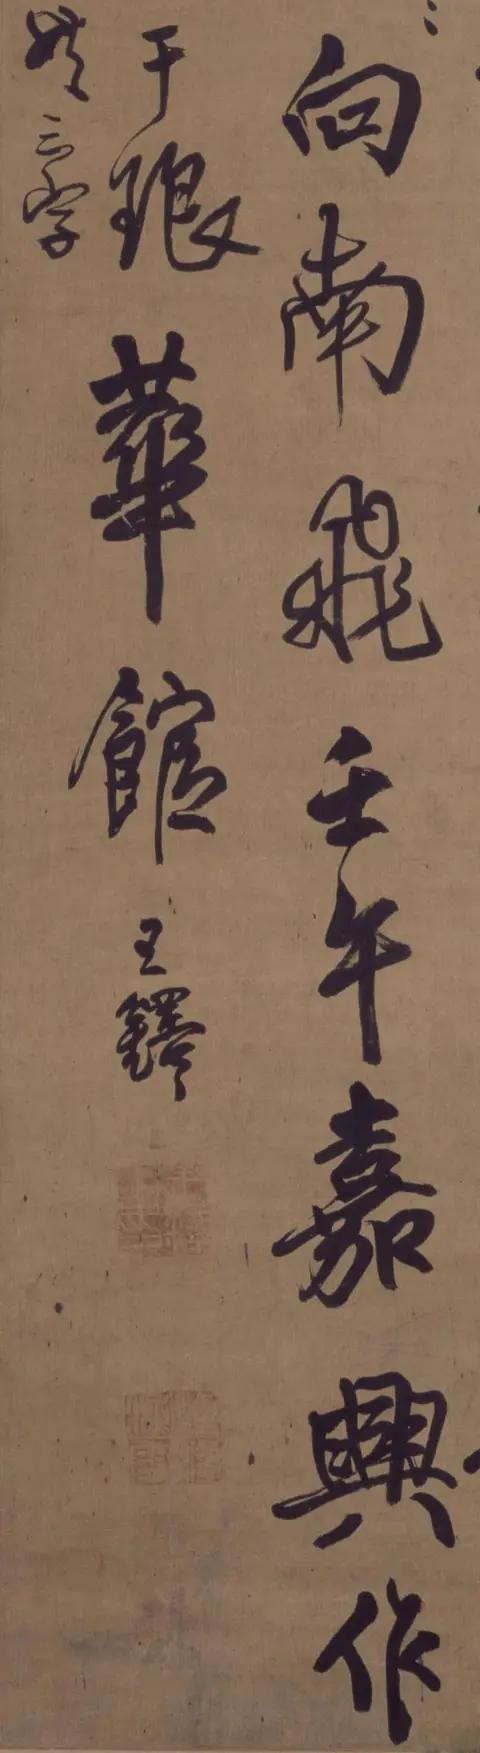 向南飛壬午嘉興作
于琅華館王鐸